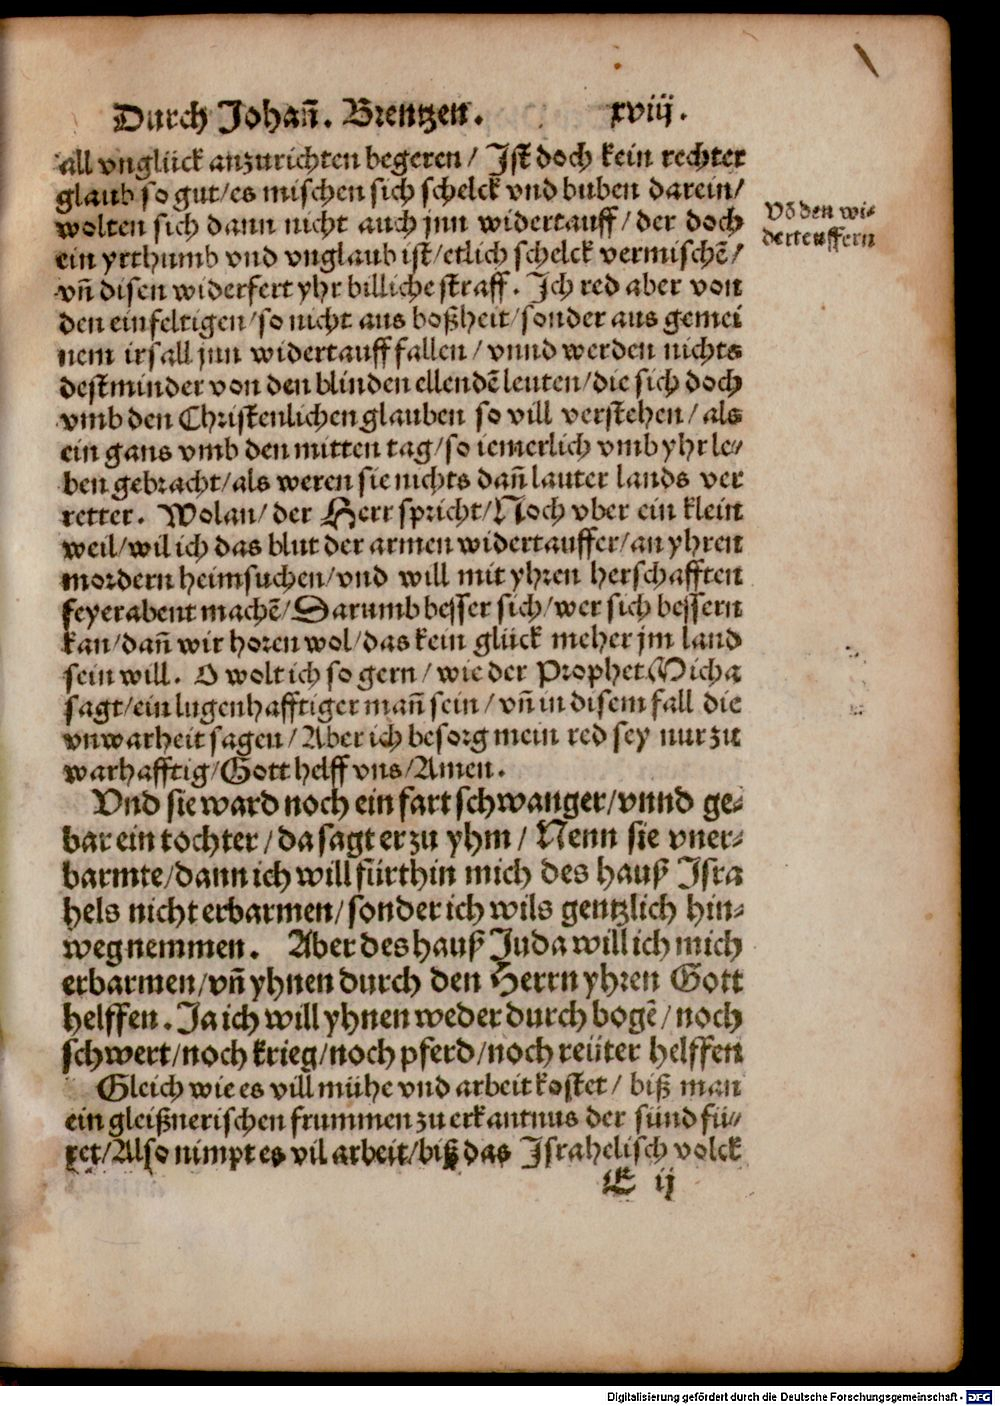 Durch Johañ. Brentzen. xviij.
all vnglück anzurichten begeren/ Ist doch kein rechter
glaub so gut/es mischen sich schelck vnd buben darein/
wolten sich dann nicht auch jnn widertauff/der doch
ein yrthumb vnd vnglaub ist/etlich schelck vermischẽ/
vñ disen widerfert yhr billiche straff. Ich red aber von
den einfeltigen/so nicht aus boßheit/sonder aus gemei
nem irsall jnn widertauff fallen/ vnnd werden nichts
destminder von den blinden ellendẽ leuten/die sich doch
vmb den Christenlichen glauben so vill verstehen/ als
ein gans vmb den mitten tag/so iemerlich vmb yhr le⸗
ben gebracht/als weren sie nichts dañ lauter lands ver
retter. Wolan/ der Herr spricht/Noch vber ein klein
weil/wil ich das blut der armen widertauffer/an yhren
mordern heimsuchen/vnd will mit yhren herschafften
feyerabent machẽ/Darumb besser sich/wer sich bessern
kan/dañ wir horen wol/das kein glück meher jm land
sein will. O wolt ich so gern/ wie der Prophet Micha
sagt/ein lugenhafftiger mañ sein/ vñ in disem fall die
vnwarheit sagen/ Aber ich besorg mein red sey nur zu
warhafftig/Gott helff vns/Amen.
Vnd sie ward noch ein fart schwanger/vnnd ge⸗
bar ein tochter/da sagt er zu yhm/ Nenn sie vner⸗
barmte/dann ich will fürthin mich des hauß Isra
hels nicht erbarmen/sonder ich wils gentzlich hin⸗
wegnemmen. Aber des hauß Juda will ich mich
erbarmen/vñ yhnen durch den Herrn yhren Gott
helffen. Ja ich will yhnen weder durch bogẽ/noch
schwert/noch krieg/noch pferd/noch reüter helffen
Gleich wie es vill mühe vnd arbeit kostet/ biß man
ein gleißnerischen frummen zu erkantnus der sünd fü⸗
ret/Also nimpt es vil arbeit/biß das Israhelisch volck
E ij
Võ den wi⸗
derteuffern
Digitalisierung gefördert durch die Deutsche Forschungsgemeinschaft - DFG